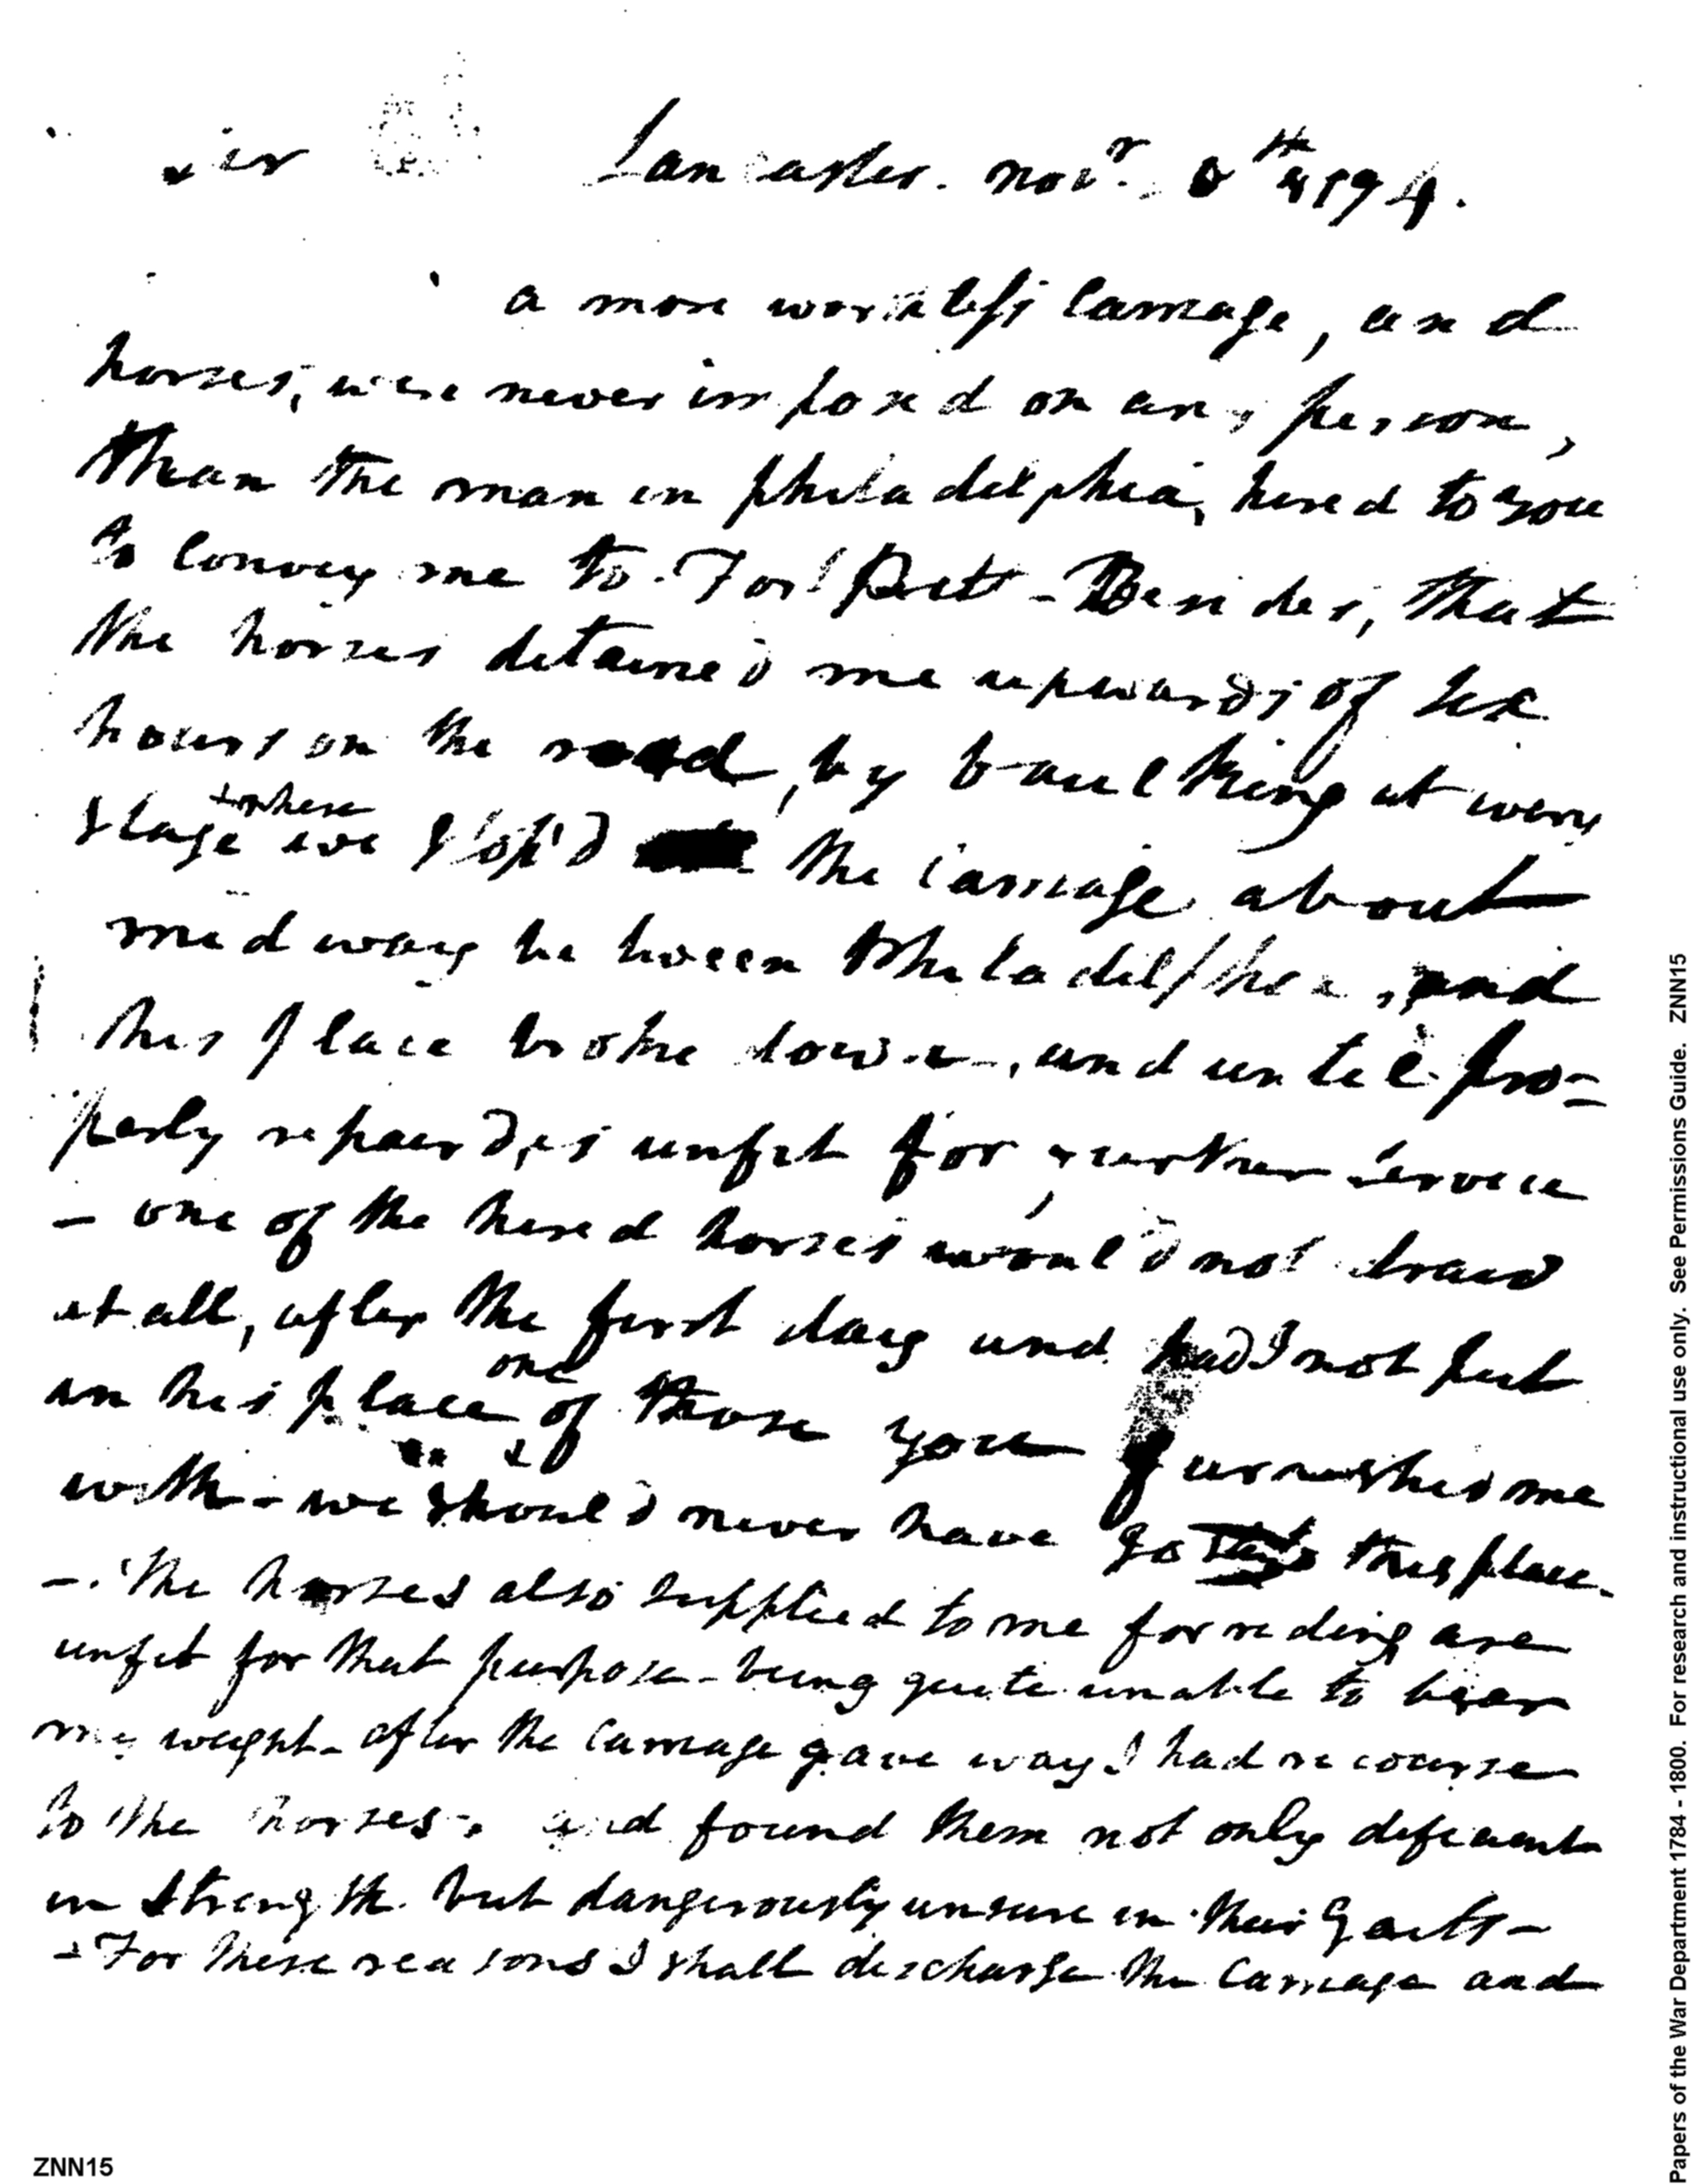 Sir Lancaster. Novr. 8th 1794.
a more worthless Carriage, and
horses, were never imposed on any person,
than the man in philadelphia, hired to you
to Convey me to Fort Pitt - Besides, that
the horses detained me upwards of six
hours on the road, by baulking at every
stage where we stop'd the Carriage about
midway between Philadelphia, and
this place broke down, and until pro=
perly repaird, is unfit for further service
- one of the hired horses would not draw
at all, after the first day and had I not put
in his place one of those you furnished me
with - we should never have got to this place.
-. The horses also supplied to me for riding are
unfit for that purpose - being quite unable to bear
my weight - after the Carriage gave way I had recourse
to the horses, and found them not only deficient
in strength but dangerously unsure in their gaits -
- For these reasons I shall discharge the Carriage and
ZNN15
Papers of the War Department 1784 - 1800. For research and instructional use only. See Permissions Guide. ZNN15